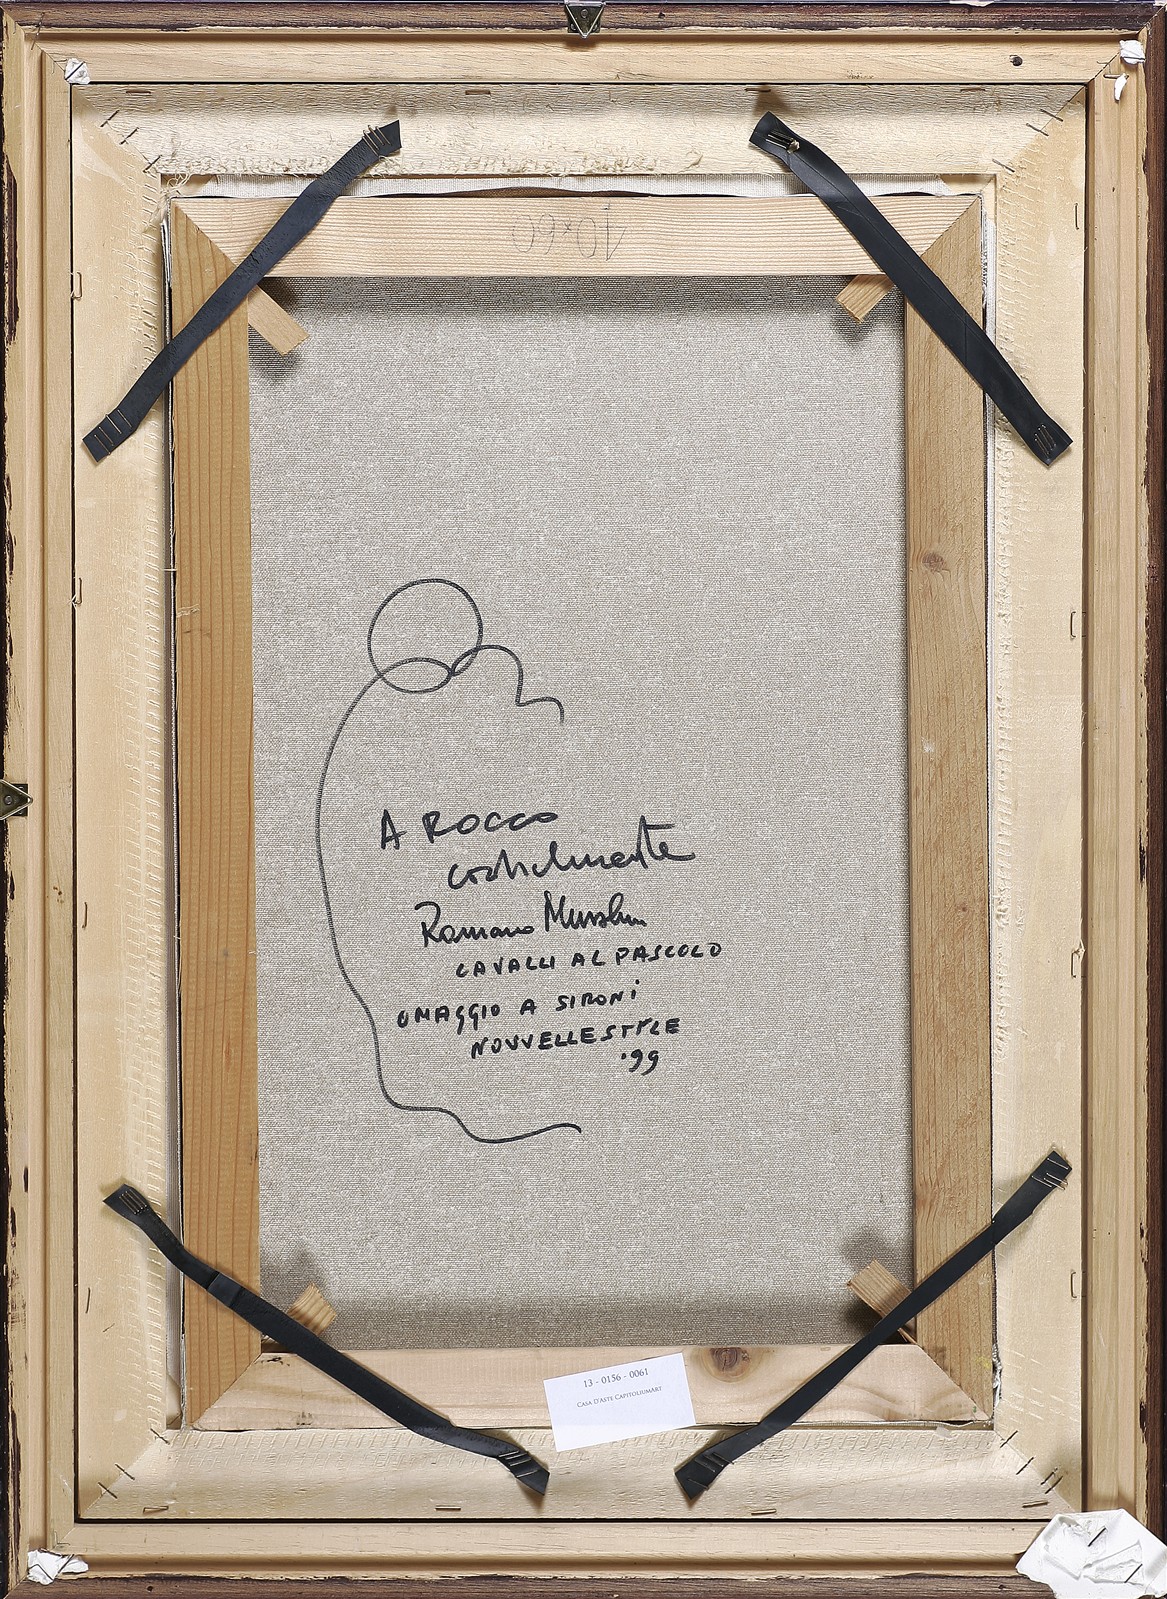 40x60
A ROCCO
cordialmente
Romano Mussolini
CAVALLI AL PASCOLO
OMAGGIO A SIRONI
NOUVELLE STYLE
'99
13 - 0156 - 0061
CASA D'ASTE CAPITOLIUMART